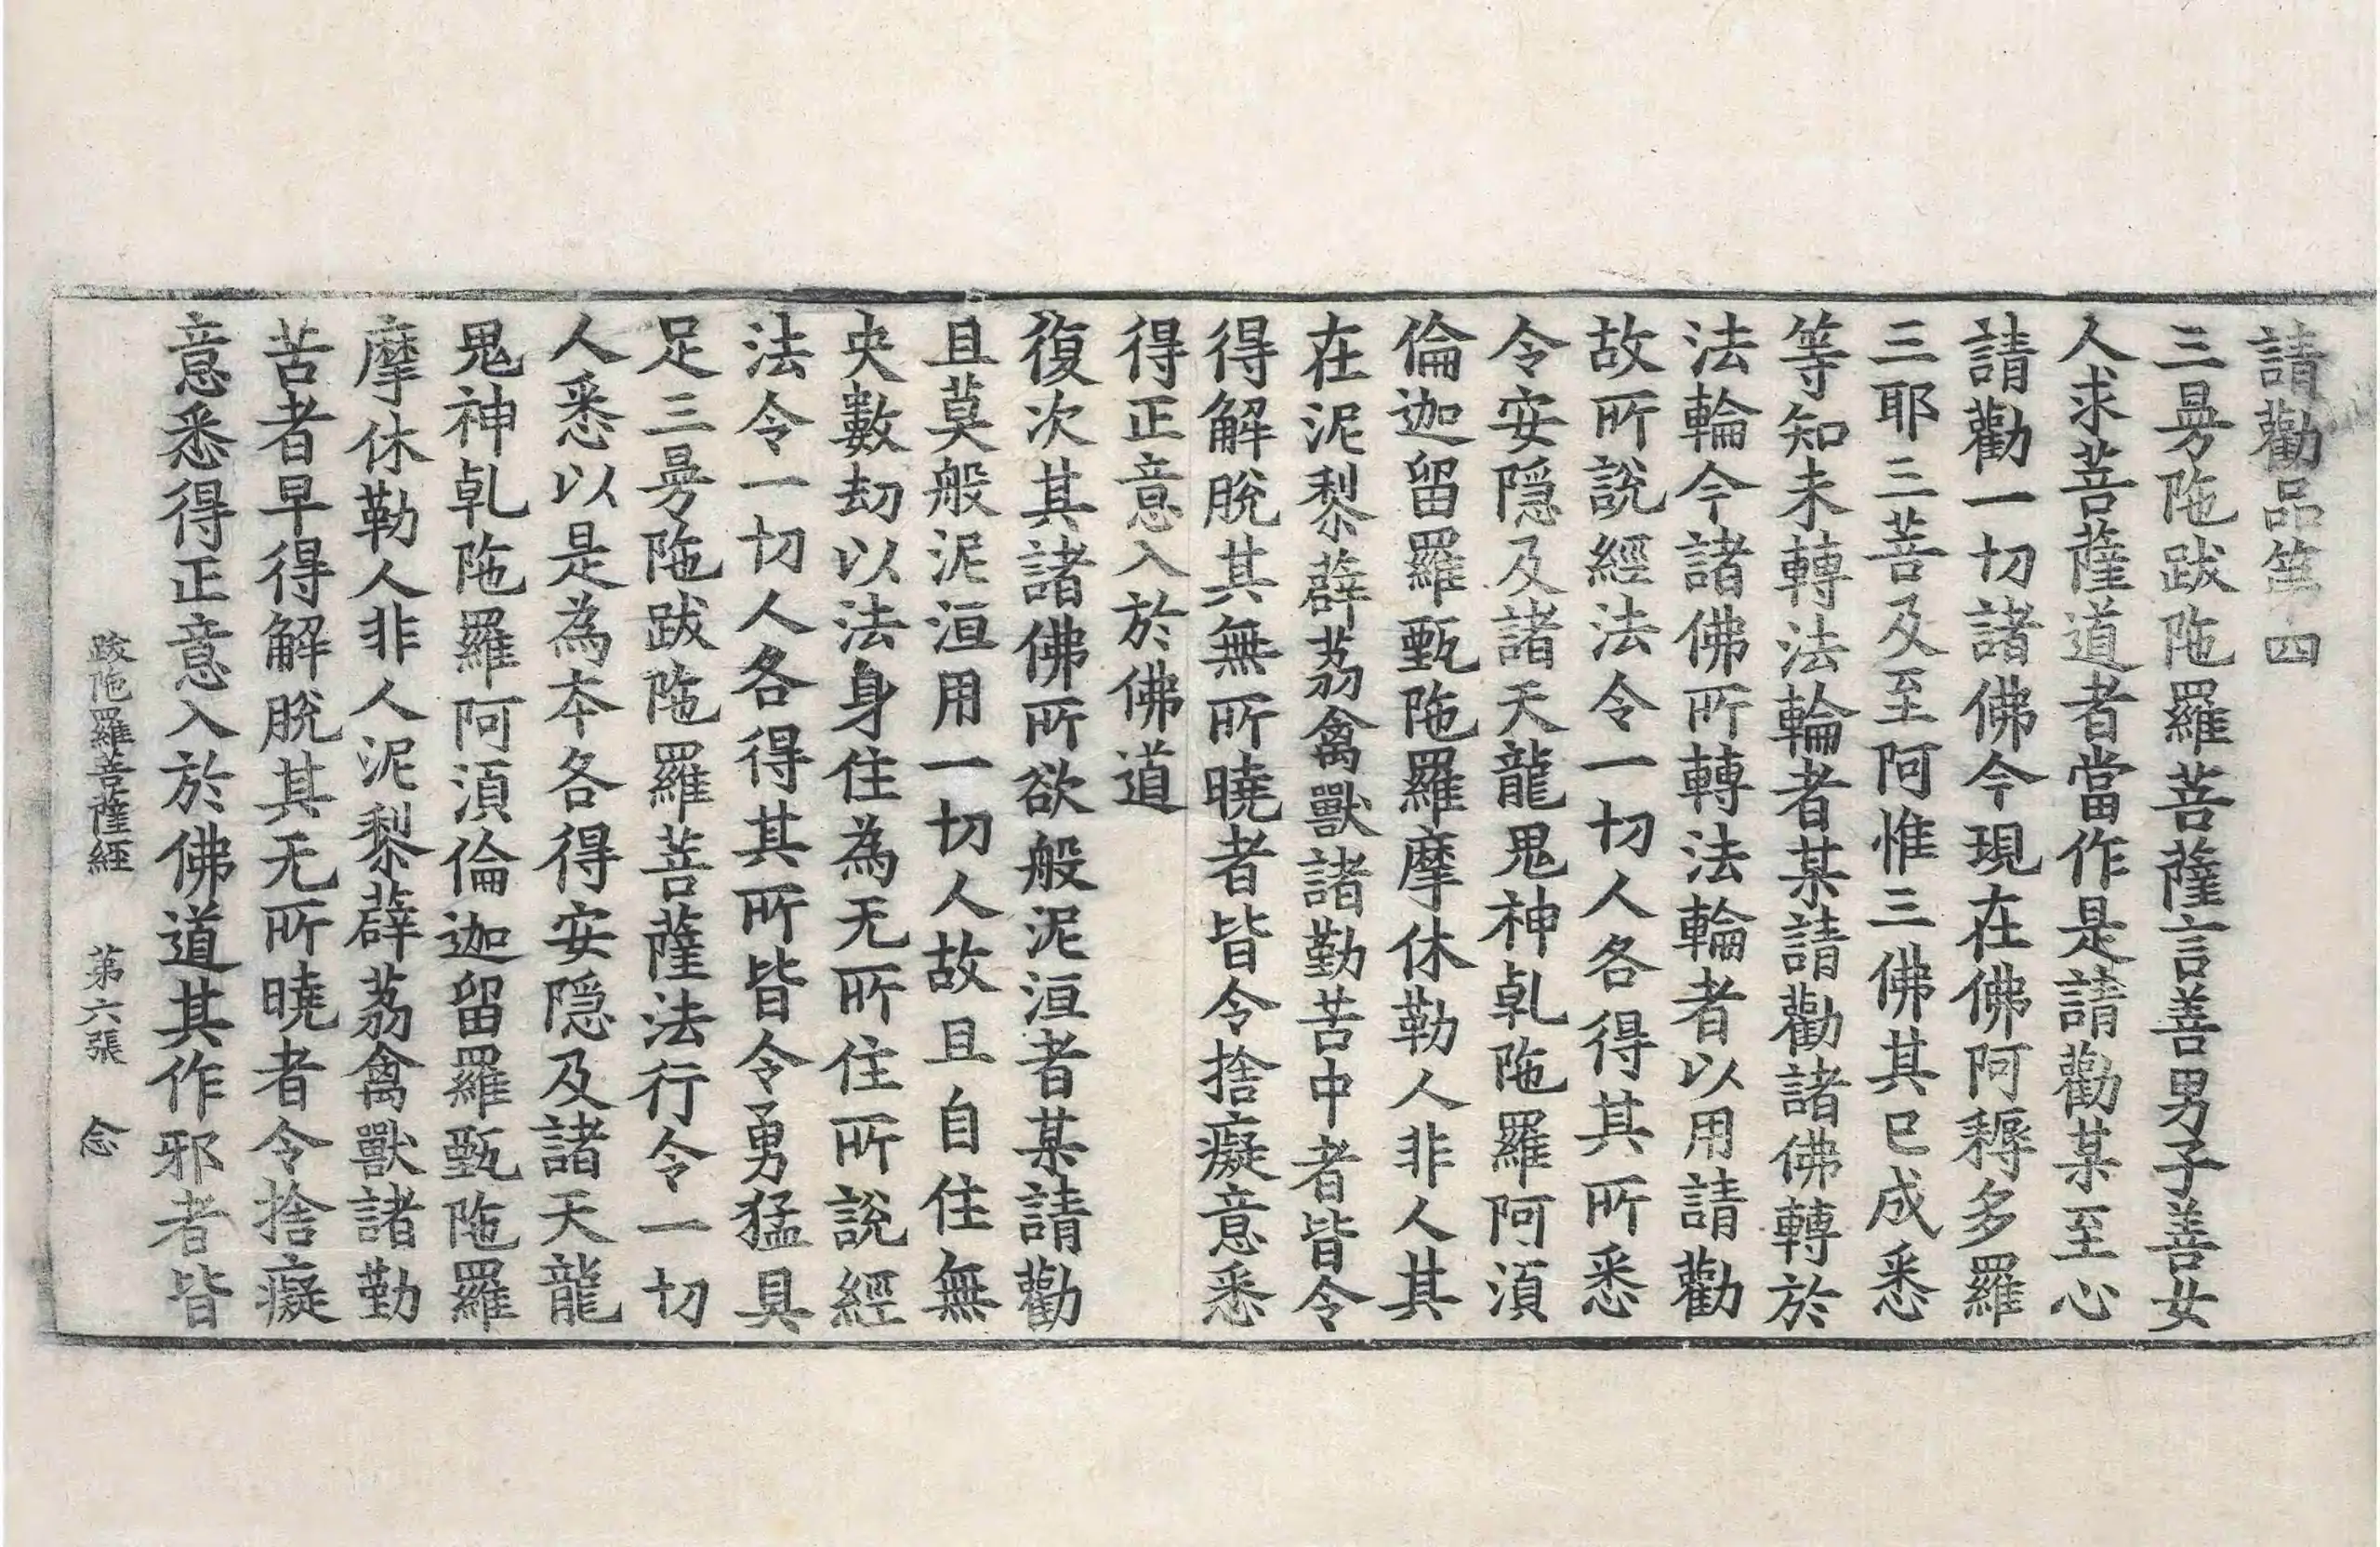 請勸品第四
三曼陁跋陁羅菩薩言善男子善女
人求菩薩道者當作是請勸某至心
請勸一切諸佛今現在佛阿耨多羅
三耶三菩及至阿惟三佛其已成悉
等知未轉法輪者某請勸諸佛轉於
法輪令諸佛所轉法輪者以用請勸
故所說經法令一切人各得其所悉
令安隱及諸天龍鬼神乹陁羅阿須
倫迦留羅甄陁羅摩休勒人非人其
在泥黎薜荔禽獸諸勤苦中者皆令
得解脫其無所曉者皆令捨癡意悉
得正意入於佛道
復次其諸佛所欲般泥洹者某請勸
且莫般泥洹用一切人故且自住無
央數劫以法身住為无所住所說經
法令一切人各得其所皆令勇猛具
足三曼陁跋陁羅菩薩法行令一切
人悉以是為本各得安隱及諸天龍
鬼神乹陁羅阿須倫迦留羅甄陁羅
摩休勒人非人泥黎薜荔禽獸諸勤
苦者早得解脫其无所曉者令捨癡
意悉得正意入於佛道其作邪者皆
跋陁羅菩薩經 第六張 念